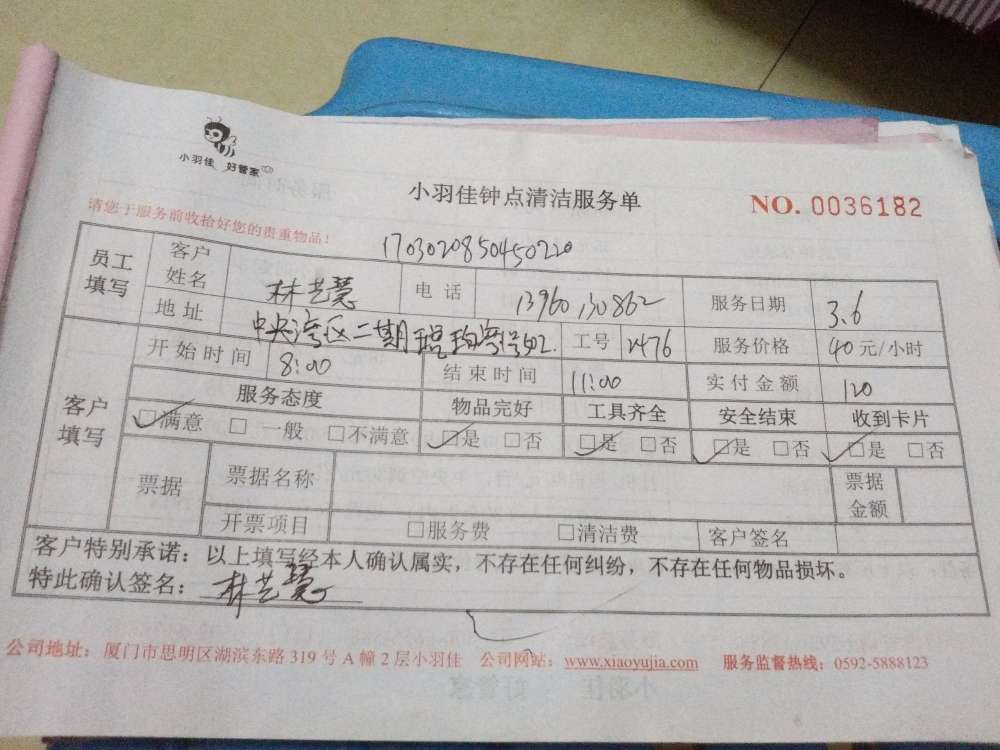 小羽佳 好管家
小羽佳钟点清洁服务单
NO. 0036182
请您于服务前收拾好您的贵重物品!
1703020850450220
员工填写 客户姓名 林艺慧 电话 13960130862 服务日期 3.6
地址 中央湾区二期 502. 工号 2476 服务价格 40元/小时
客户填写 开始时间 8:00 结束时间 11:00 实付金额 120
服务态度 物品完好 工具齐全 安全结束 收到卡片
☑满意 □一般 □不满意 ☑是 □否 ☑是 □否 ☑是 □否 ☑是 □否
票据 票据名称 票据金额
开票项目 □服务费 □清洁费 客户签名
客户特别承诺:以上填写经本人确认属实,不存在任何纠纷,不存在任何物品损坏。
特此确认签名: 林艺慧
公司地址:厦门市思明区湖滨东路319号A幢2层小羽佳 公司网站:www.xiaoyujia.com 服务监督热线:0592-5888123